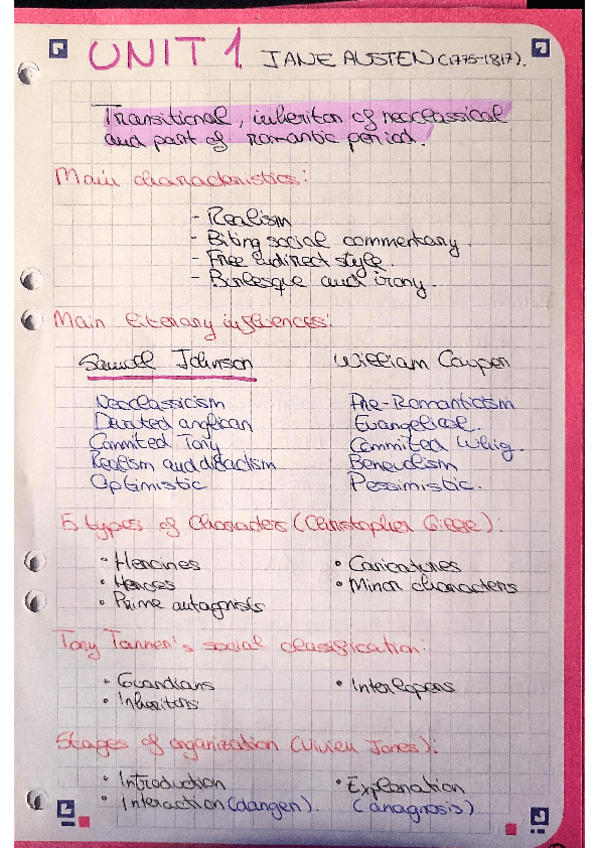 UNIT 1 JANE AUSTEN (1775-1817).
Transitional, inheritor of neoclassical
and part of romantic period.
Main characteristics:
- Realism
- Biting social commentary.
- Free indirect style.
- Burlesque and irony.
Main literary influences:
Samuel Johnson William Cowper
Neoclassicism Pre-Romanticism
Devoted anglican Evangelical.
Commited Tory Commited Whig.
Realism and didactism Benevolism
Optimistic Pessimistic.
5 types of Characters (Christopher Giese):
• Heroines • Caricatures
• Heroes • Minor characters
• Prime antagonists
Tony Tanner's social classification:
• Guardians • Interlopers
• Inheritors
Stages of organization (Vivien Jones):
• Introduction • Explanation
• Interaction (danger). (anagnosis)